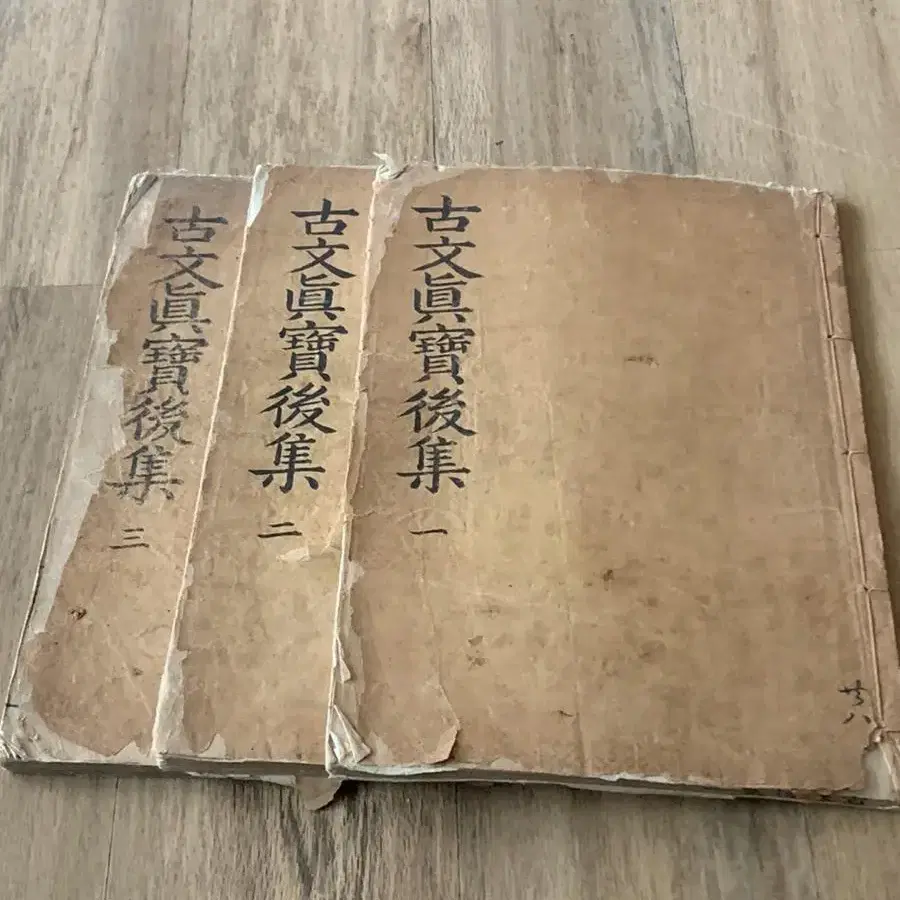 古文眞寶後集 一
古文眞寶後集 二
古文眞寶後集 三